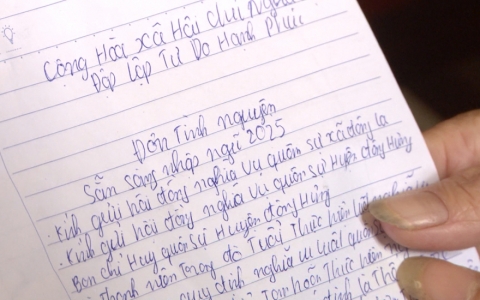 Cộng Hòa xã Hội chủ Nghĩa
Độc lập Tự Do Hạnh Phúc
Đơn Tình nguyện
Sẵn sàng nhập ngũ 2025
. Kính gửi hội đồng nghĩa vụ quân sự xã đông la
. Kính gửi hội đồng nghĩa vụ quân sự Huyện đông Hưng
Ban chỉ Huy quân sự Huyện đông Hưng
Thanh niên Trong độ Tuổi Thực hiện luật nghĩa
quy định nghĩa vụ luật quân
Thực hiện
định là